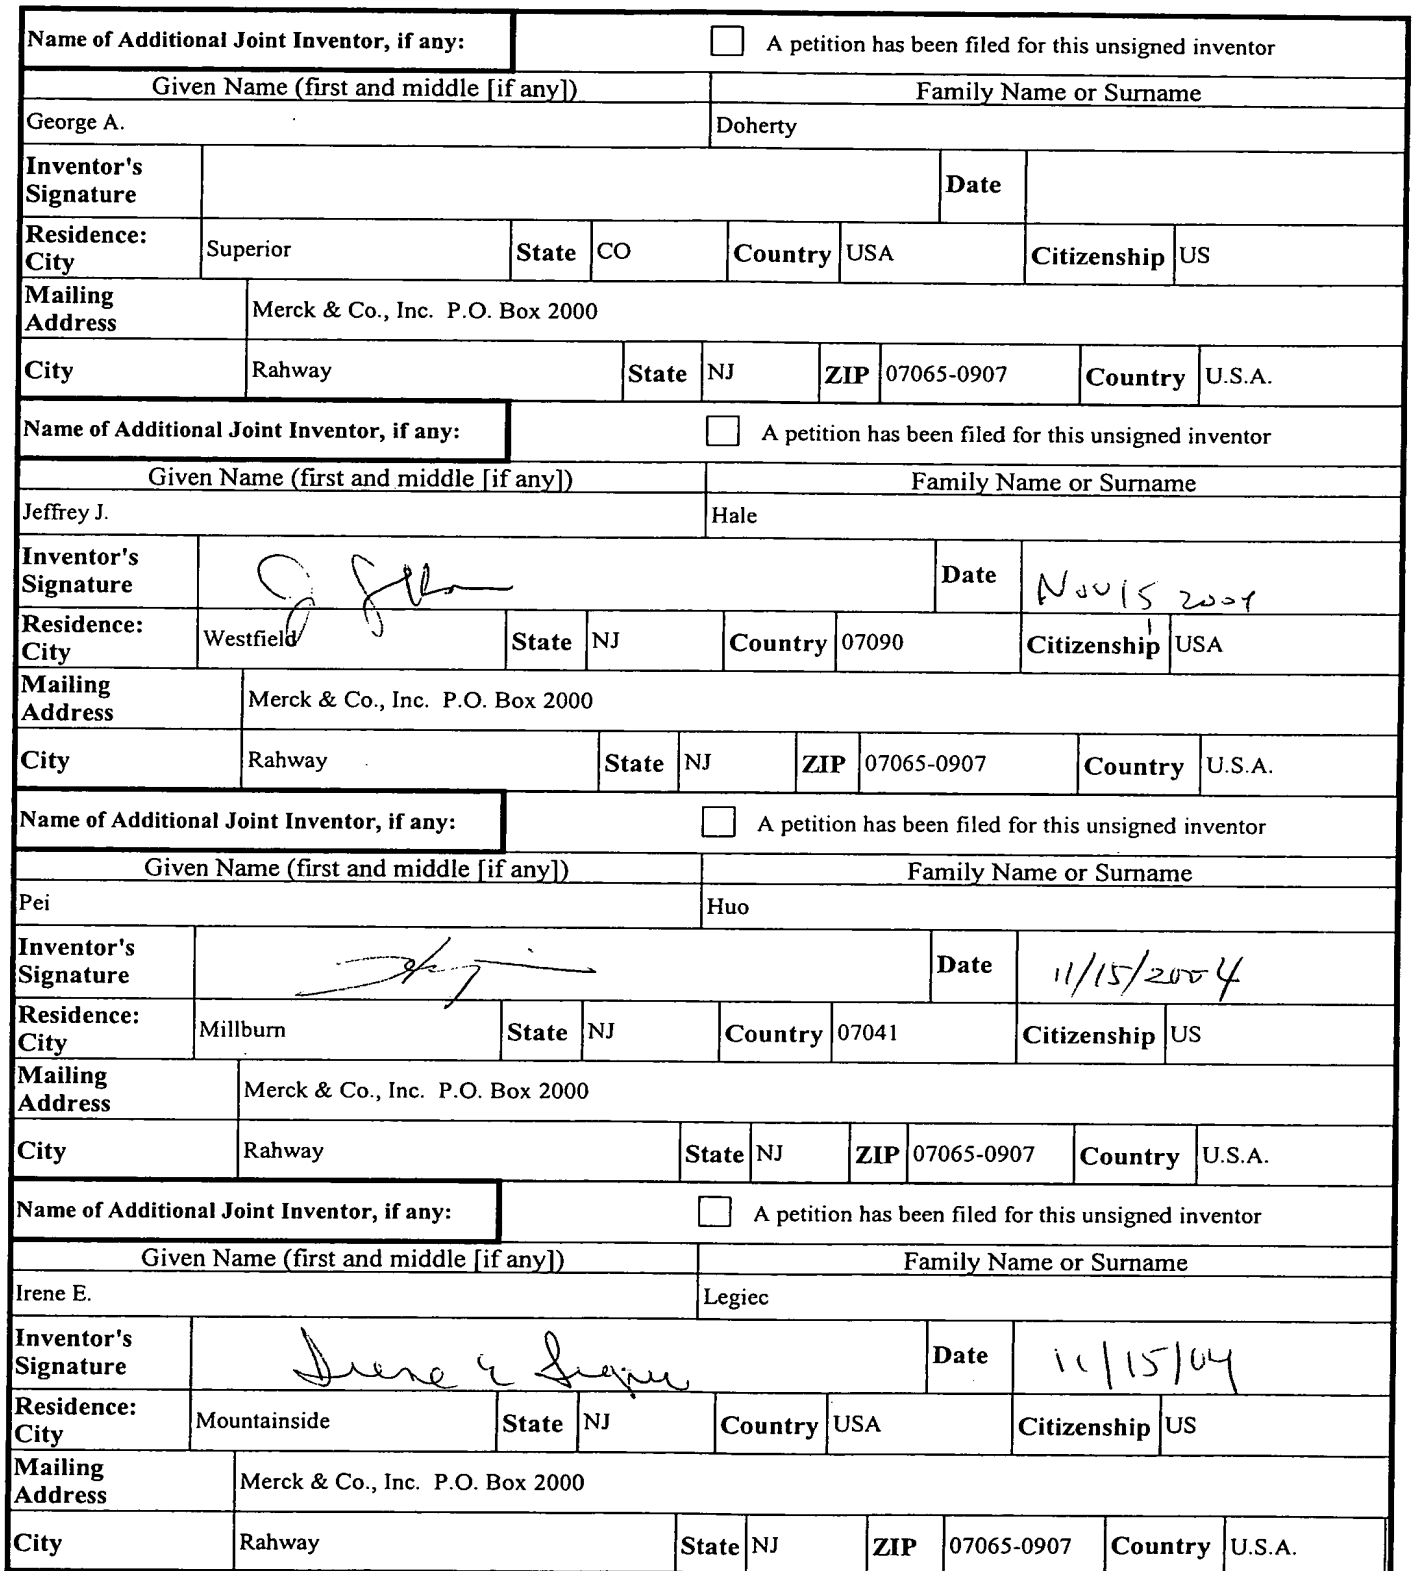 Name of Additional Joint Inventor, if any: A petition has been filed for this unsigned inventor
Given Name (first and middle [if any]) Family Name or Surname
George A. Doherty
Inventor's Signature Date
Residence: City Superior State CO Country USA Citizenship US
Mailing Address Merck & Co., Inc. P.O. Box 2000
City Rahway State NJ ZIP 07065-0907 Country U.S.A.
Name of Additional Joint Inventor, if any: A petition has been filed for this unsigned inventor
Given Name (first and middle [if any]) Family Name or Surname
Jeffrey J. Hale
Inventor's Signature Date Nov 15 2004
Residence: City Westfield State NJ Country 07090 Citizenship USA
Mailing Address Merck & Co., Inc. P.O. Box 2000
City Rahway State NJ ZIP 07065-0907 Country U.S.A.
Name of Additional Joint Inventor, if any: A petition has been filed for this unsigned inventor
Given Name (first and middle [if any]) Family Name or Surname
Pei Huo
Inventor's Signature Date 11/15/2004
Residence: City Millburn State NJ Country 07041 Citizenship US
Mailing Address Merck & Co., Inc. P.O. Box 2000
City Rahway State NJ ZIP 07065-0907 Country U.S.A.
Name of Additional Joint Inventor, if any: A petition has been filed for this unsigned inventor
Given Name (first and middle [if any]) Family Name or Surname
Irene E. Legiec
Inventor's Signature Irene E Legiec Date 11/15/04
Residence: City Mountainside State NJ Country USA Citizenship US
Mailing Address Merck & Co., Inc. P.O. Box 2000
City Rahway State NJ ZIP 07065-0907 Country U.S.A.